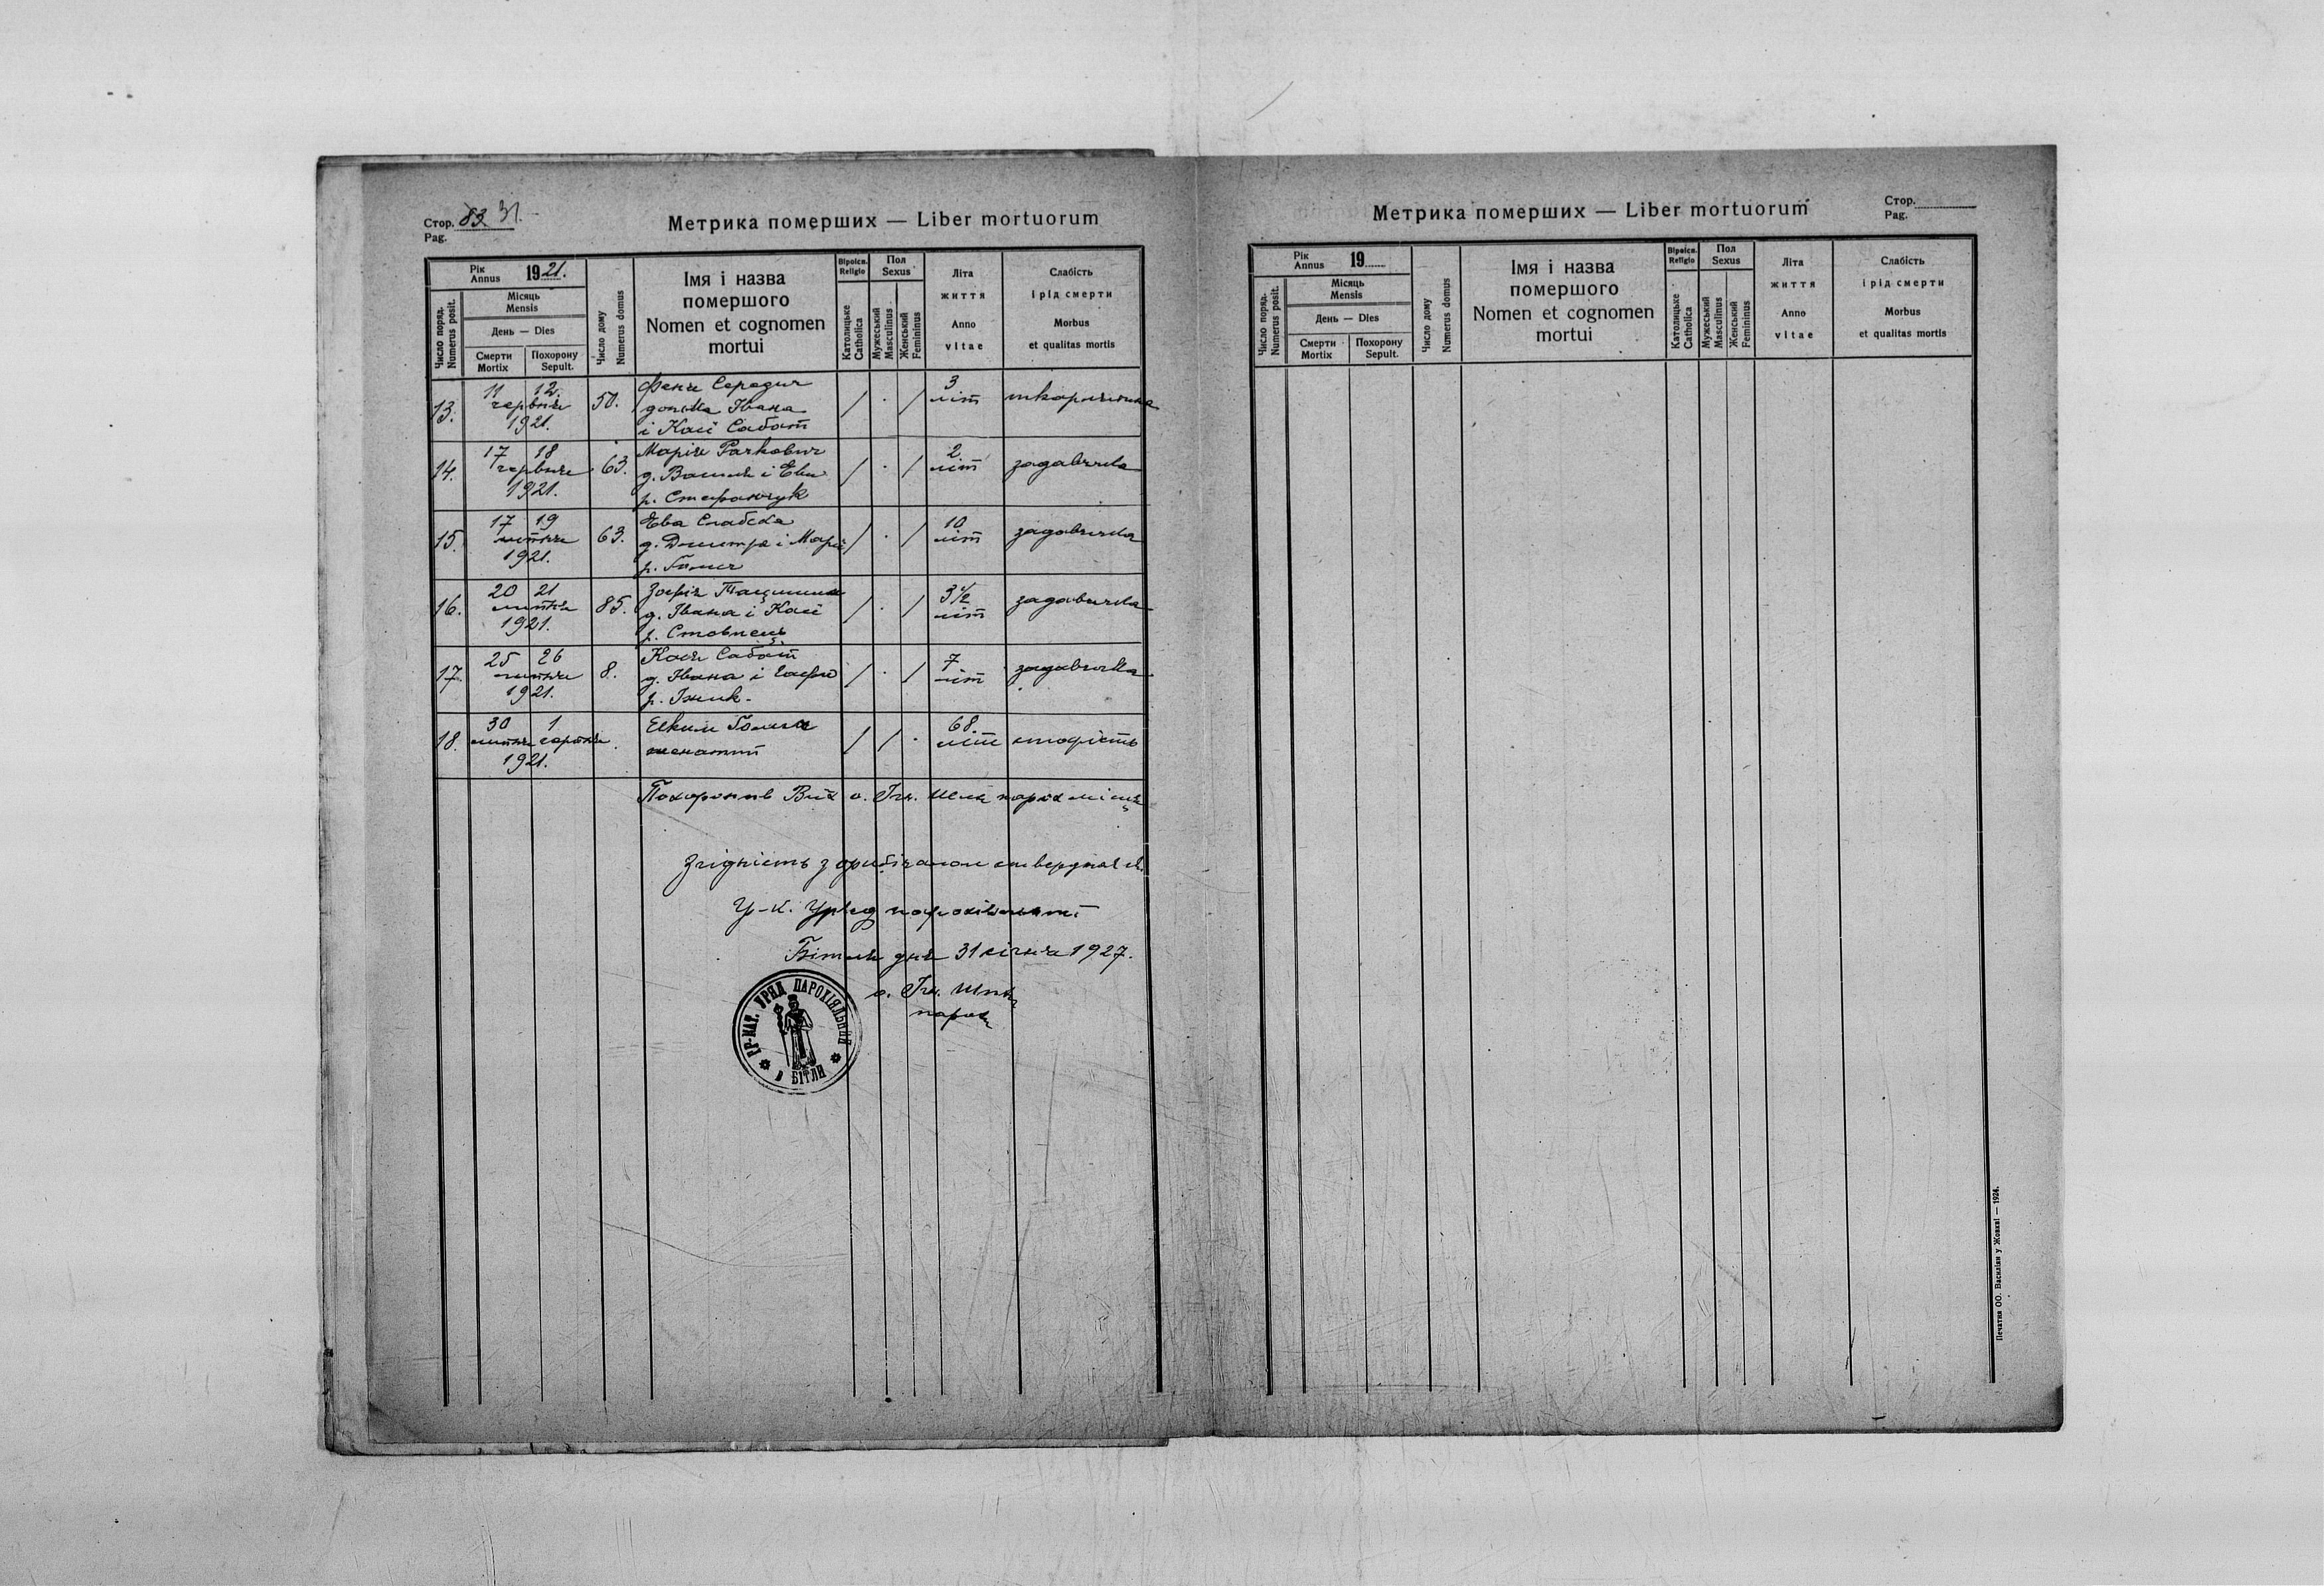 Стор. 83 31.
Pag.
Метрика померших — Liber mortuorum
Рік
Annus
1921.
Число поряд.
Numerus posit.
Місяць
Mensis
День — Dies
Смерти
Mortix
Похорону
Sepult.
Число дому
Numerus domus
Імя і назва
помершого
Nomen et cognomen
mortui
Віроісп.
Religio
Католицьке
Catholica
Пол
Sexus
Мужеський
Masculinus
Женський
Femininus
Літа
життя
Anno
vitae
Слабість
і рід смерти
Morbus
et qualitas mortis
13.
11 12.
червня
1921.
50.
Феня Середич
донька Івана
і Касі Сабат
/ . /
3
літ
шкарлятина
14.
17 18
червня
1921.
63.
Марія Рачкович
д. Василя і Еви
р. Стефанчук
/ . /
2
літ
задавичка
15.
17 19
липня
1921.
63.
Ева Слабска
д. Дмитра і Марії
р.
/ . /
10
літ
задавичка
16.
20 21
липня
1921.
85.
Зофія
д. Івана і Касі
р. Стовпець
/ . /
3 1/2
літ
задавичка
17.
25 26
липня
1921.
8.
Кася Сабат
д. Івана і Софії
р.
/ . /
7
літ
задавичка
18.
30 1
липня серпня
1921.
женатий
/ / .
68.
літ
старість
Похоронив Всіх о. Гн. парох місця
Згідність з оригіналом стверджаєся.
Гр-к. Уряд парохіяльний
Бітля дня 31 січня 1927.
о. Гн.
парох
ГР-КАТ. УРЯД ПАРОХІЯЛЬНИЙ
В БІТЛИ
Метрика померших — Liber mortuorum
Стор.
Pag.
Рік
Annus
19
Число поряд.
Numerus posit.
Місяць
Mensis
День — Dies
Смерти
Mortix
Похорону
Sepult.
Число дому
Numerus domus
Імя і назва
помершого
Nomen et cognomen
mortui
Віроісп.
Religio
Католицьке
Catholica
Пол
Sexus
Мужеський
Masculinus
Женський
Femininus
Літа
життя
Anno
vitae
Слабість
і рід смерти
Morbus
et qualitas mortis
Печатня ОО. Василіян у Жовкві — 1924.